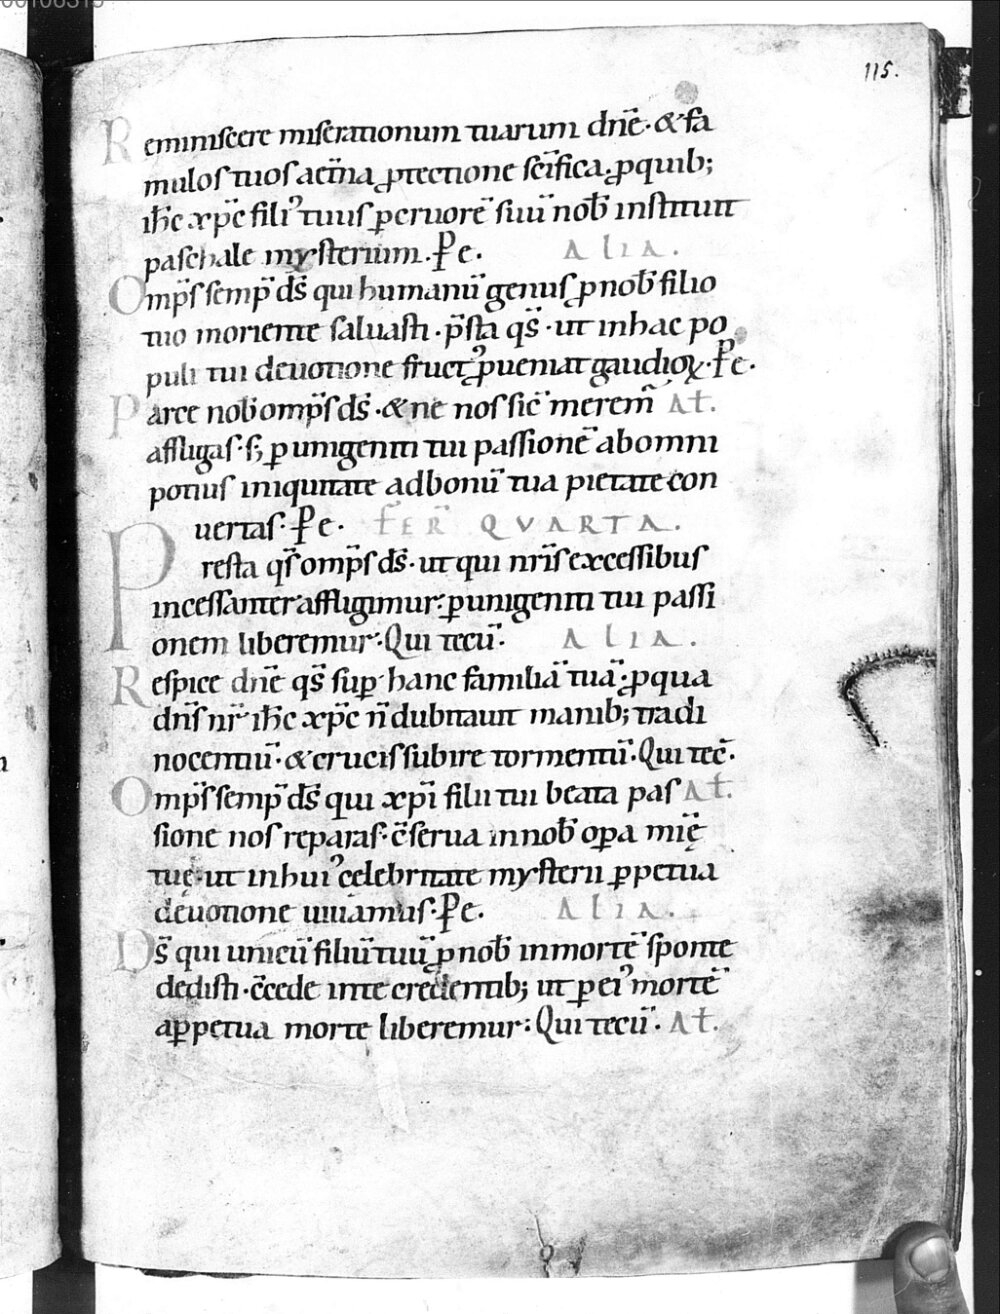 115.
Reminiscere miserationum tuarum dn̄e· & fa
mulos tuos aet̄na ꝓtectione sc̄ifica· ꝓ quib;
ih̄c xp̄c filiꝰ tuus ꝑ cruorē suū nob̄ instituit
paschale mysterium. Ꝑ e. ALIA.
Omp̄s semp̄ ds̄ qui humanū genus ꝓ nob̄ filio
tuo moriente saluasti· p̄sta qs̄· ut inhac po
puli tui deuotione fructꝰ ꝓueniat gaudioꝝ· Ꝑ e.
Parce nob̄ omp̄s ds̄· & ne nos sic̄ merem̄ At̄.
affligas· s; ꝑ unigeniti tui passionē abomni
potius iniquitate adbonū tua pietate con
uertas· Ꝑ e. FER̄ QVARTA.
Presta qs̄ omp̄s ds̄· ut qui nr̄is excessibus
incessanter affligimur· ꝑ unigeniti tui passi
onem liberemur· Qui tecū· ALIA.
Respice dn̄e qs̄ suꝑ hanc familiā tuā· ꝓ qua
dn̄s nr̄ ih̄c xp̄c n̄ dubitauit manib; tradi
nocentiū· & crucis subire tormentū· Qui tec̄.
Omp̄s semp̄ ds̄ qui xp̄i filii tui beata pas At̄.
sione nos reparas· c̄serua innob̄ oꝑa mię̄
tuę· ut inhuiꝰ celebritate mysterii ꝑpetua
deuotione uiuamus· Ꝑ e. ALIA.
Ds̄ qui unicū filiū tuū ꝓ nob̄ inmortē sponte
dedisti· c̄cede inte credentib; ut ꝑ eiꝰ mortē
aꝑpetua morte liberemur: Qui tecū· At̄.